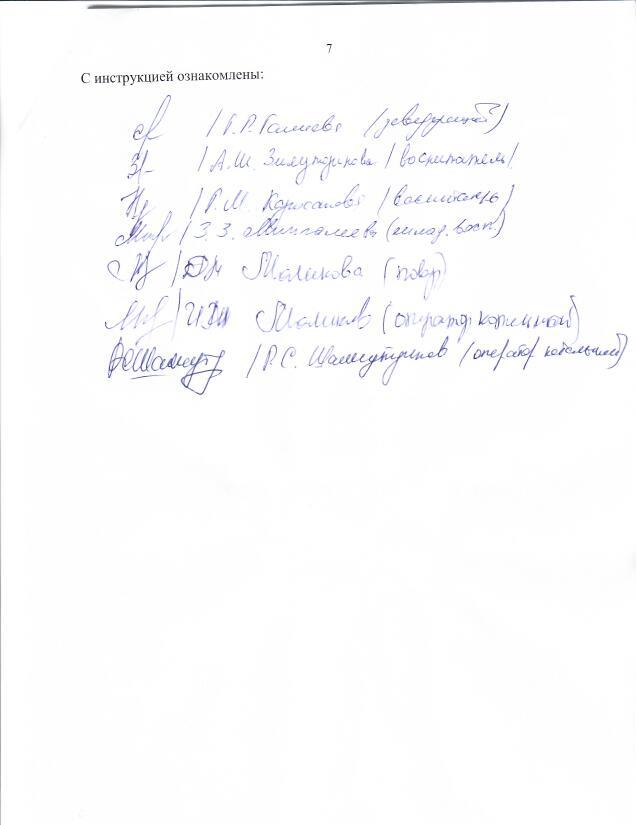 7
С инструкцией ознакомлены:
/ Г.Р. Галиева (заведующий)
/ А.Ш. / воспитатель /
/ Г.М. / воспитатель)
/ З.З. Мингалеева (млад. восп.)
/ Маликова (повар)
/ Маликов (оператор котельной)
/ Р.С. Шамсутдинов (оператор котельной)